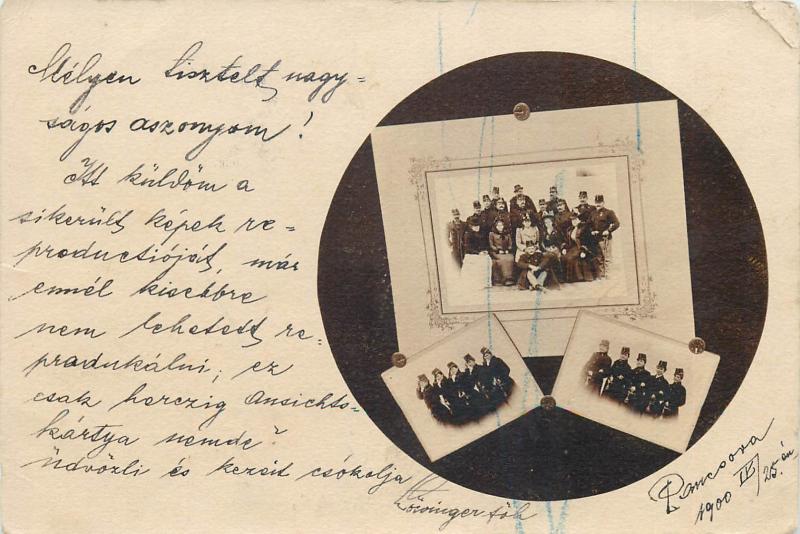 Mélyen tisztelt nagy=
ságos aszonyom!
Itt küldöm a
sikerült képek re=
productióját, már
ennél kisebbre
nem lehetett re=
pradukálni; ez
csak herczig Ansichts-
kártya nemde?
üdvözli és kezeit csókolja
főh
Pancsova
1900 IV/25-én